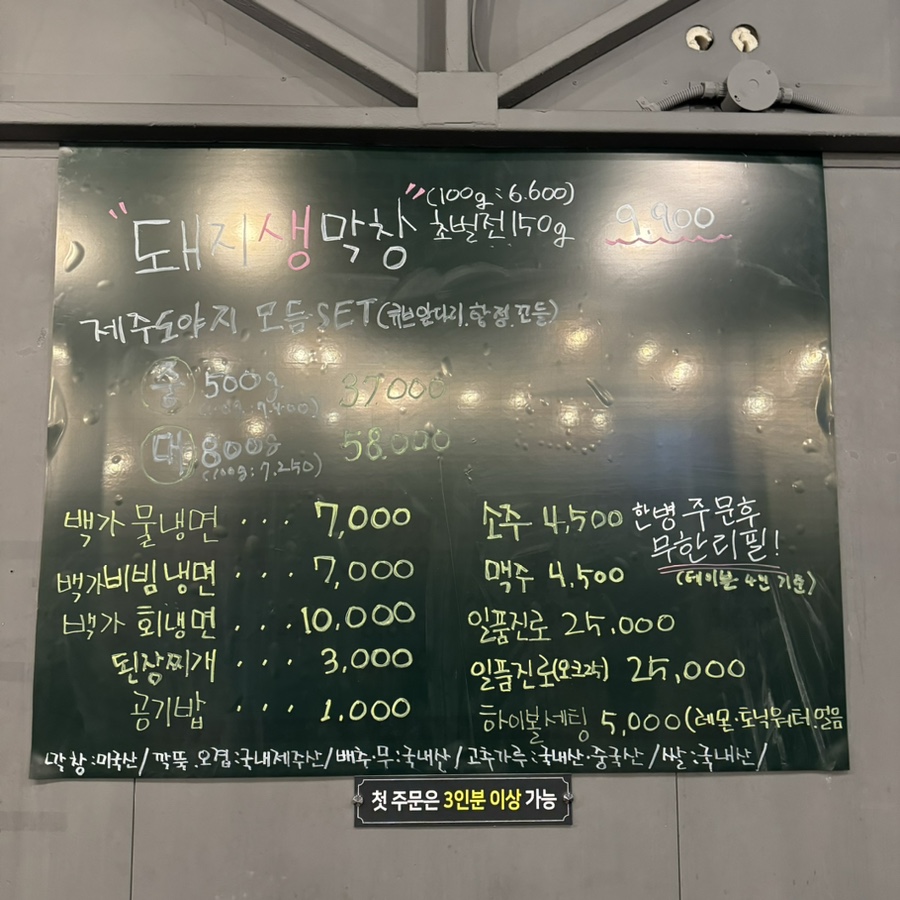 (100g: 6.600)
"돼지생막창" 초벌전150g 9.900
제주도야지 모듬SET(큐브앞다리.항정.꼬들)
중 500g 37000
(100g: 7.400)
대 800g 58.000
(100g: 7.250)
백가 물냉면 ... 7,000
백가비빔냉면 ... 7,000
백가 회냉면 ... 10,000
된장찌개 ... 3,000
공기밥 ... 1,000
소주 4,500 한병 주문후
무한리필!
맥주 4,500 (테이블 4인 기준)
일품진로 25,000
일품진로(오크25) 25,000
하이볼세팅 5,000(레몬·토닉워터·얼음
막창:미국산/깍뚝.오겹:국내제주산/배추·무:국내산/고추가루:국내산·중국산/쌀:국내산/
첫 주문은 3인분 이상 가능